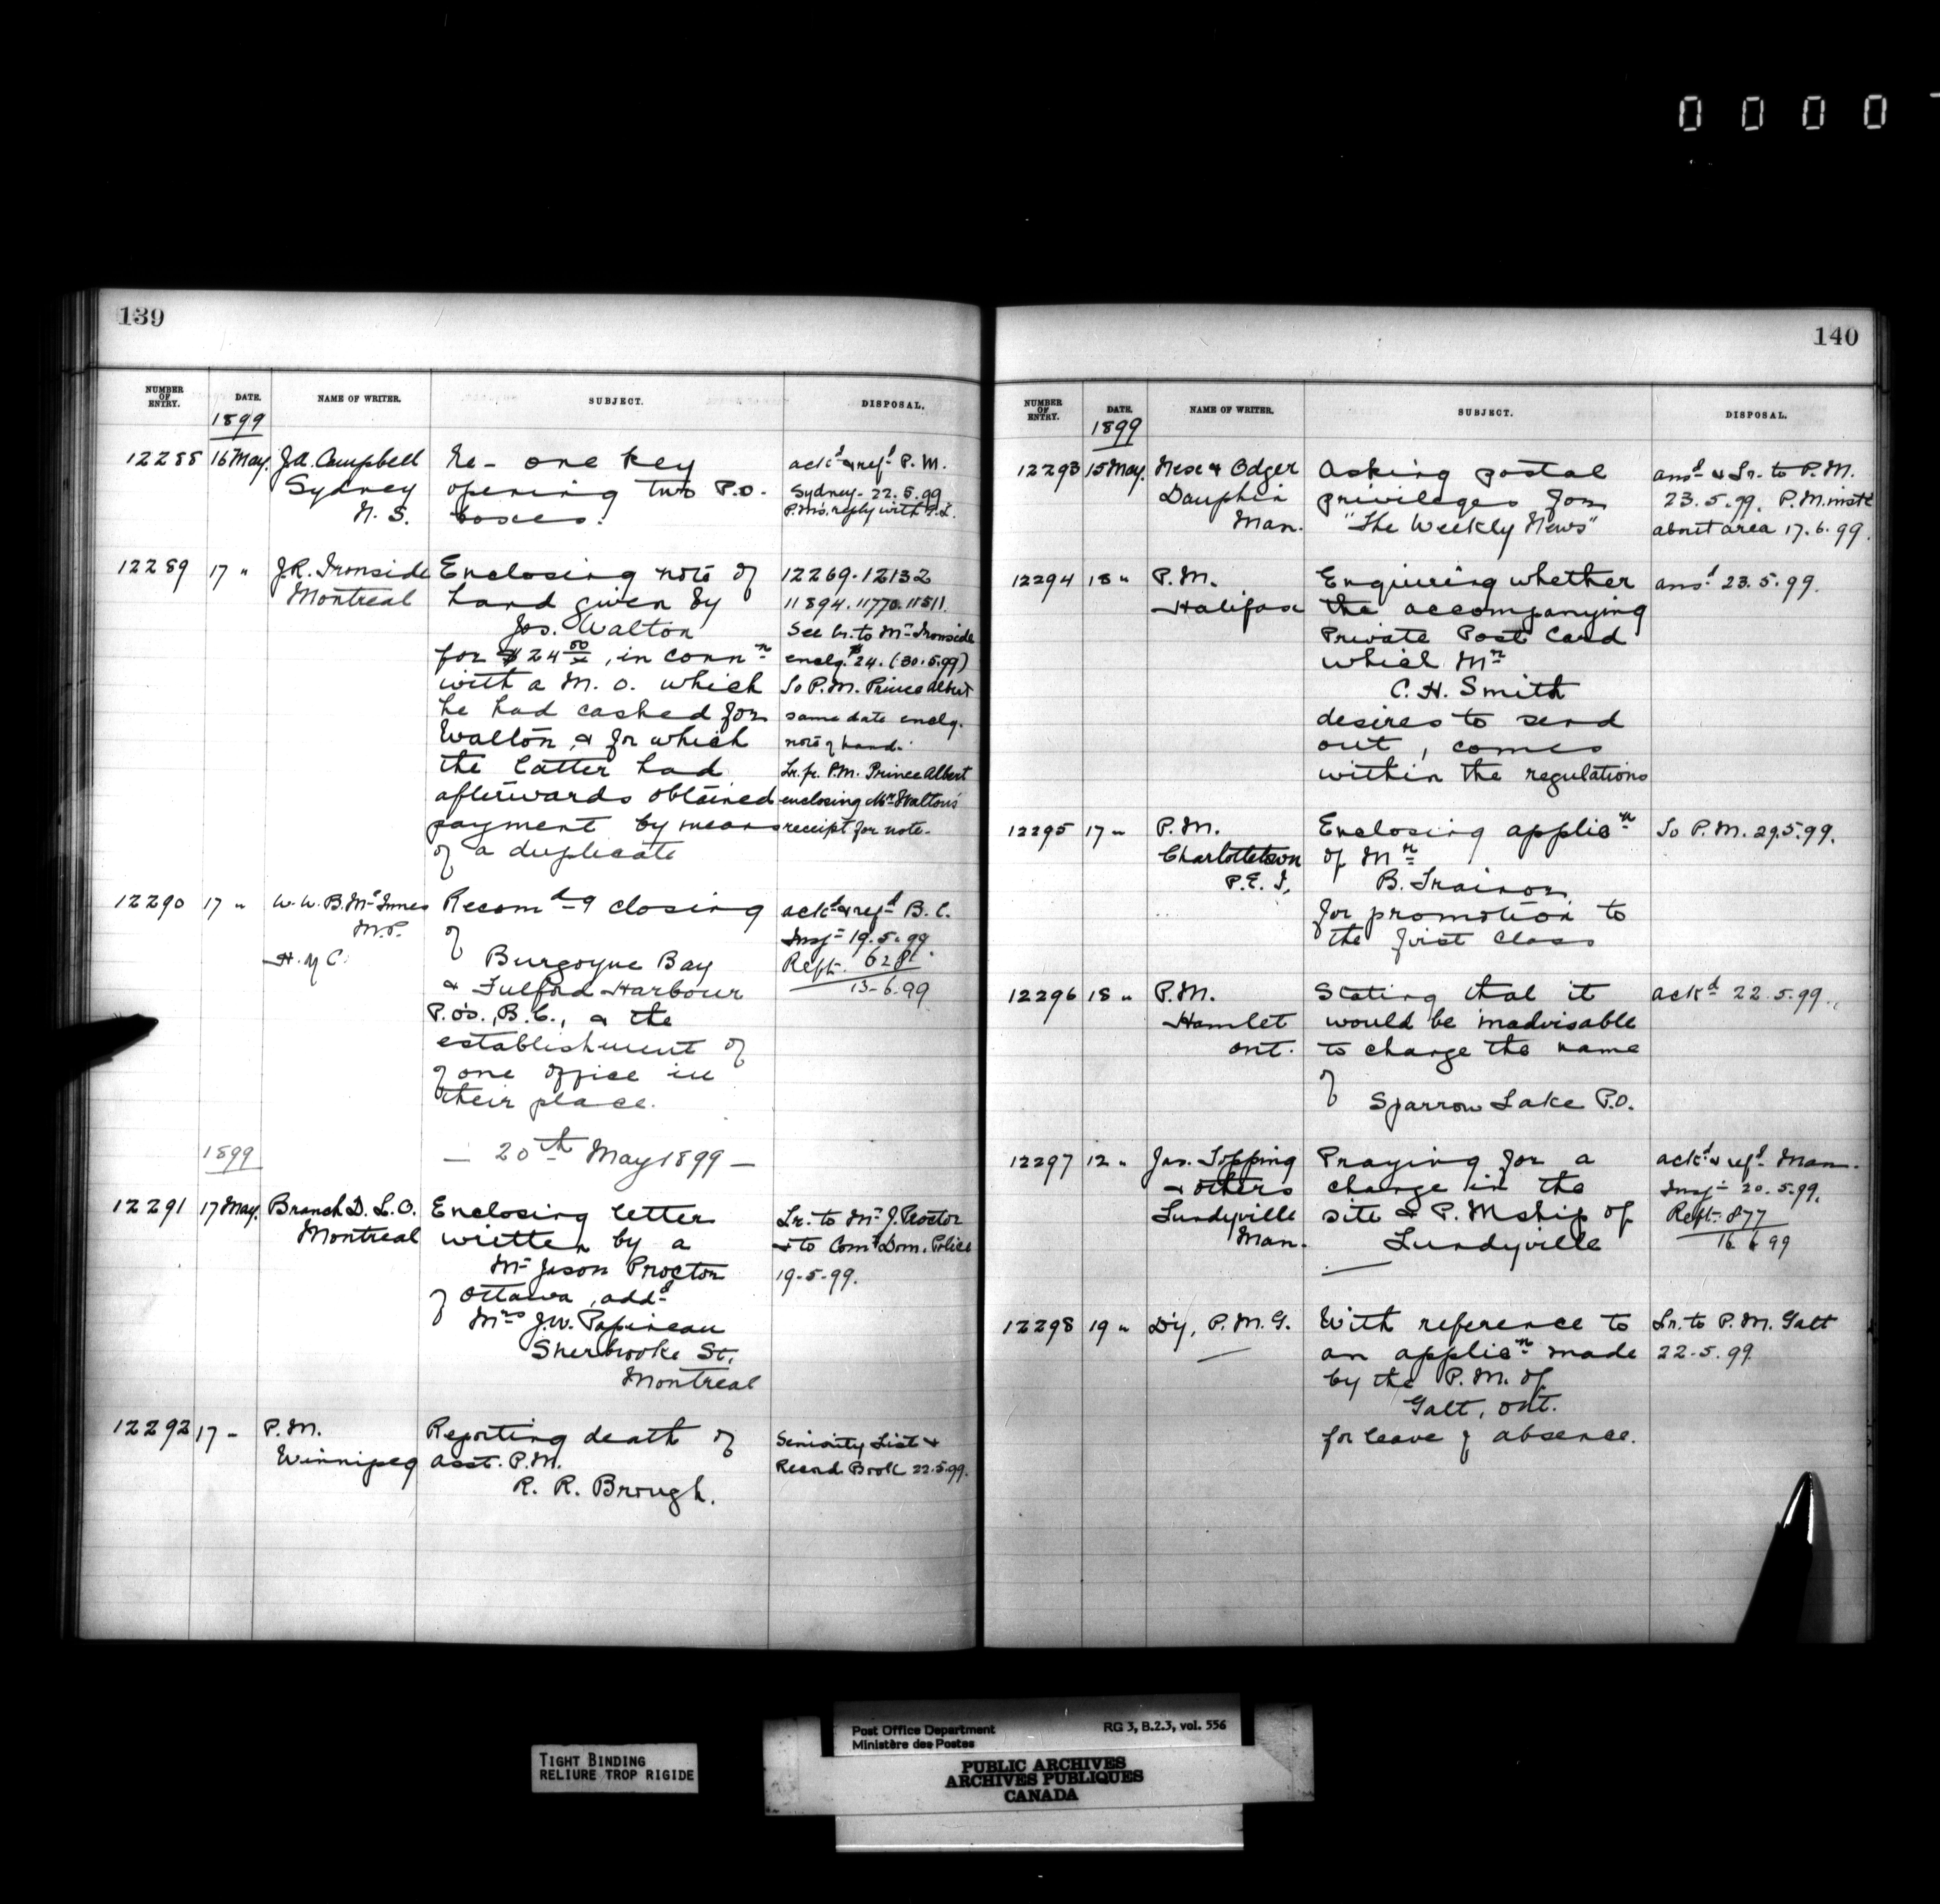 0 0 0 0
139
NUMBER OF ENTRY. DATE. NAME OF WRITER. SUBJECT. DISPOSAL.
1899
12288 16 May. J.A. Campbell Re - one key ack^d & ref^d P.M.
Sydney opening two P.O. Sydney - 22.5.99
N.S. boxes. P.M's. reply with P.L.
12289 17 " J.R. Ironside Enclosing note of 12269. 12132
Montreal hand given by 11894. 11770. 11511.
Jos. Walton See lr. to Mr Ironside
for $24 50/x, in conn^n enclg. $24. (30.5.99)
with a M.O. which To P.M. Prince Albert
he had cashed for same date enclg.
Walton, & for which note of hand.
the latter had Lr. fr. P.M. Prince Albert
afterwards obtained enclosing Mr Walton's
payment by means receipt for note.
of a duplicate
12290 17 " W.W.B. McInnes Recom^d-g closing ack^d & ref^d B.C.
M.P. of Insp^r 19.5.99
H. of C. Burgoyne Bay Rept. 628
& Fulford Harbour 13-6.99
P.O's., B.C., & the
establishment of
of one office in
their place.
1899 — 20th May 1899 —
12291 17 May. Branch D.L.O. Enclosing letter Lr. to Mr J. Proctor
Montreal written by a & to Com^r Dom. Police
Mr Jason Proctor 19-5-99.
of Ottawa, add^d
Mrs J.W. Papineau
Sherbrooke St.
Montreal
12292 17 - P.M. Reporting death of Seniority List &
Winnipeg asst. P.M. Record Book 22.5.99.
R. R. Brough.
140
NUMBER OF ENTRY. DATE. NAME OF WRITER. SUBJECT. DISPOSAL.
1899
12293 15 May. & Odger Asking postal ans^d & Lr. to P.M.
Dauphin privileges for 23.5.99. P.M. inst^d
Man. "The Weekly News" about area 17.6.99.
12294 18 " P.M. Enquiring whether ans^d 23.5.99.
Halifax the accompanying
Private Post Card
which Mr
C.H. Smith
desires to send
out, comes
within the regulations
12295 17 " P.M. Enclosing applic^n To P.M. 29.5.99.
Charlottetown of Mr
P.E.I. B. Trainor
for promotion to
the first class
12296 18 " P.M. Stating that it ack^d 22.5.99.
Hamlet would be inadvisable
Ont. to change the name
of
Sparrow Lake P.O.
12297 12 " Jas. Topping Praying for a ack^d & ref^d Man.
& others change in the Insp^r 20.5.99.
Lundyville site & P.Mship of Rept. 877
Man. Lundyville 16 6 99
12298 19 " Dy. P.M.G. With reference to Lr. to P.M. Galt
an applic^n made 22-5.99
by the P.M. of
Galt, Ont.
for leave of absence.
TIGHT BINDING
RELIURE TROP RIGIDE
Post Office Department RG 3, B.2.3, vol. 556
Ministère des Postes
PUBLIC ARCHIVES
ARCHIVES PUBLIQUES
CANADA